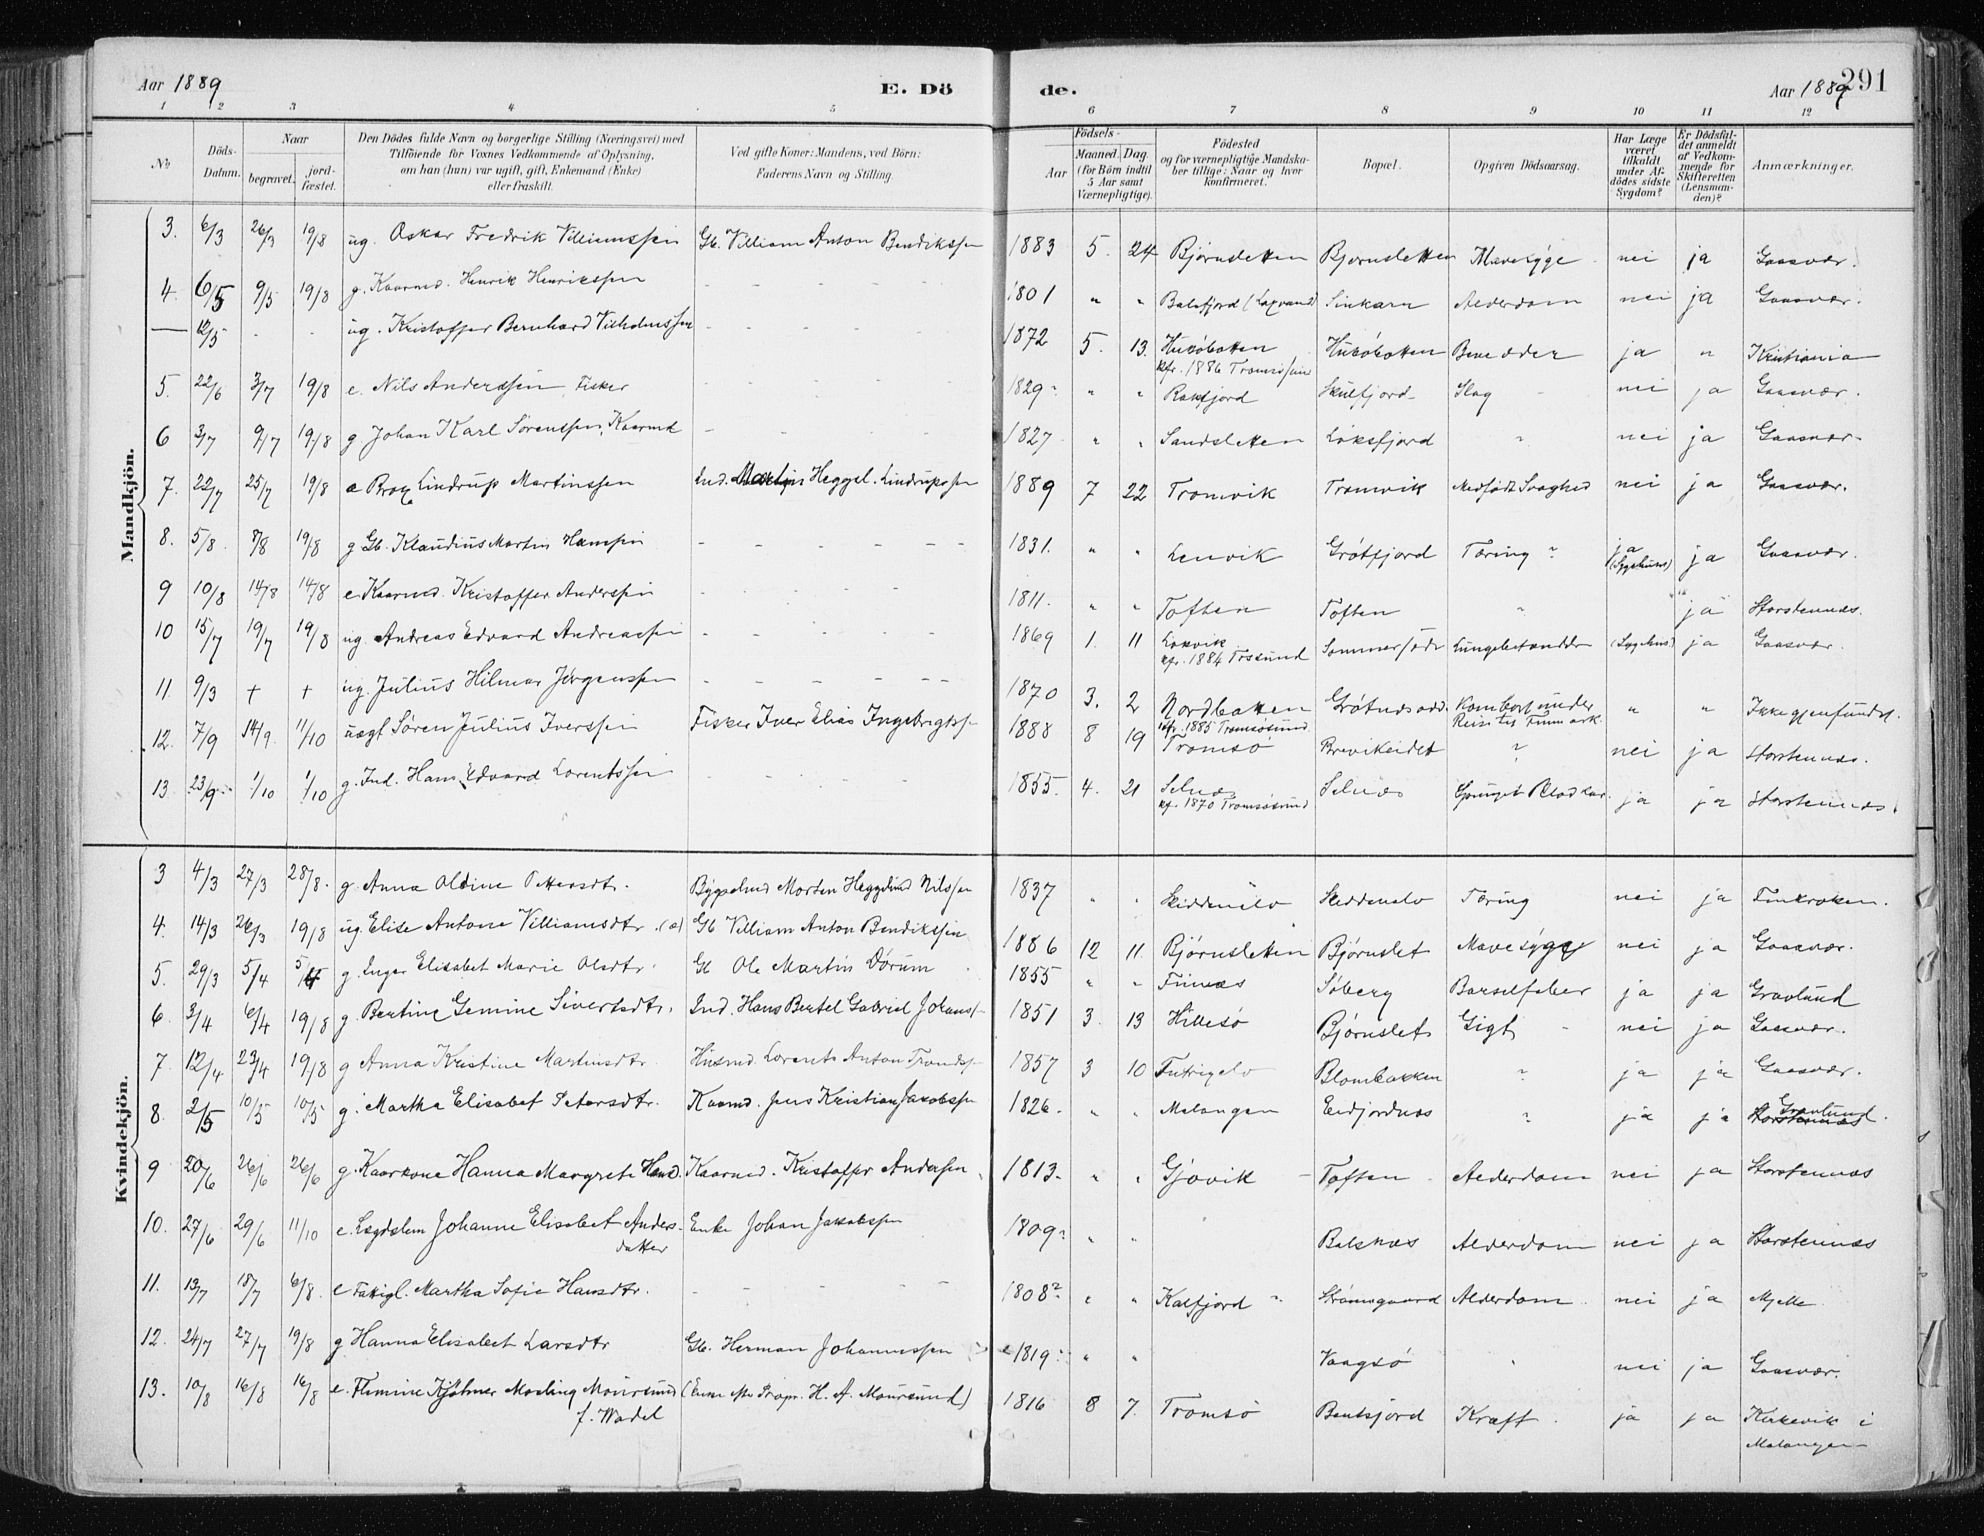 Aar 1889 E. Dö
de. Aar 1889 291
1 2 3 4 5 6 7 8 9 10 11 12
No
Döds-Datum.
Naar
begravet.
jord-fæstet.
Den Dödes fulde Navn og borgerlige Stilling (Næringsvei) med
Tilföiende for Voxnes Vedkommende af Oplysning,
om han (hun) var ugift, gift, Enkemand (Enke)
eller fraskilt.
Ved gifte Koner: Mandens, ved Börn:
Faderens Navn og Stilling.
Födsels-
Aar
Maaned. Dag.
(for Börn indtil
5 Aar samt
Værnepligtige).
Födested
og for værnepligtige Mandska-
ber tillige: Naar og hvor
konfirmeret.
Bopæl.
Opgiven Dödsaarsag.
Har Læge
været
tilkaldt
under Af-
dödes sidste
Sygdom?
Er Dödsfal-
det anmeldt
af Vedkom-
mende for
Skifteretten
(Lensman-
den)?
Anmærkninger.
Mandkjön.
3. 6/3 26/3 19/8 ug. Oskar Fredrik Villiamssen Gb. Villiam Anton Bendikssen 1883 5. 24 Bjørnsletten Bjørnsletten Mavesyge nei ja Gaasvær.
4. 6/5 9/5 19/8 g. Kaarmd. Henrik Henrikssen - - - - - 1801 " " Balsfjord (Laxvand) Sinkarn Alderdom nei ja Gaasvær.
— 12/5 - - ug. Kristoffer Bernhard Vilhelmssen - - - - - 1872 5. 13. Husøbakken Husøbakken Benedder ja " Kristiania
kfr. 1886 Tromsøsun
5. 22/6 3/7 19/8 e. Nils Anderssen, Fisker 1829 " " Rakfjord Skulsfjord Slag nei ja Gaasvær.
6 3/7 9/7 19/8 g Johan Karl Sørenssen, Kaarmd - - - - - 1827 " " Sandsletten Løksfjord " nei ja Gaasvær.
7. 22/7 25/7 19/8 Brox Lindrup Martinssen Ind. Martin Heggel. Lindrupssen 1889 7 22 Tromvik Tromvik Medfødt Svaghed nei ja Gaasvær.
8. 5/8. 8/8 19/8 g Gb. Klaudius Martin Hanssen - - - - - 1831. " " Lenvik Grøtfjord Tæring " ja ja Gaasvær.
(Sygehuus)
9 10/8 14/8 14/8 e Kaarmd. Kristoffer Anderssen - - - - - 1811. " " Toften Toften " " ja Storstennæs.
10 15/7 19/7 19/8 ug. Andreas Edvard Andreassen - - - - - 1869 1. 11 Laxvik Lungebetændelse (Sygehus) ja Gaasvær.
kfr. 1884 Tossund
11. 9/3 + + ug. Julius Hilmar Jørgenssen - - - - - 1870 3. 2 Nordbakken Kombort under " " Ikke gjenfundet.
kfr. 1885 Tromsøsund Reis til Finmark
12. 7/9 14/9. 11/10 uægt Søren Julius Iverssen Fisker Iver Elias Ingebrigtss 1888 8 19 Tromsø Breivikeidet " nei ja Storstennæs.
13. 23/9 1/10 1/10 g. Ind. Hans Edvard Lorentssen - - - - 1855. 4. 21 Selnæs Selnæs Sprunget Blodkar. ja ja Storstennæs.
kf. 1870 Tromsøsund
Kvindekjön.
3 4/3 27/3 28/8. g. Anna Oldine Pettersdtr. Bygselmd Morten Heggelund Nilssen 1837 " " Skiddenelv Skiddenelv Tæring nei ja Finkroken.
4. 14/3 26/3 19/8 ug. Elise Antone Villiamsdtr. (a) Gb Villiam Anton Bendikssen 1886 12 11. Bjørnsletten Bjørnslet Mavesyge nei ja Gaasvær.
5. 29/3 5/4 5/4 g. Inger Elisabet Marie Olsdtr. Gb Ole Martin Dørum 1855 " " Finnæs Søberg Barselfeber ja ja Gravlund
6. 3/4 6/4 19/8 g. Bertine Gemine Sivertsdtr. Ind. Hans Bertel Gabriel Johanss 1851 3. 13 Hillesø Bjørnslet Gigt nei ja Gaasvær.
7. 12/4 23/4 19/8 g Anna Kristine Martinsdtr. Husmd Lorents Anton Trondss 1857 3 10 Futrigelv Blombakken " ja ja Gaasvær.
8. 2/5 10/5 10/5 g. Martha Elisabet Petersdtr. Kaarmd. Jens Kristian Jakobssen 1826. " " Malangen Eidjordnæs " ja ja Storstennæs Gravlund.
9 20/6 26/6 26/6 g. Kaarkone Hanna Margrete Hansd. Kaarmd. Kristoffer Anderssen 1813. " " Gjøvik Toften Alderdom nei ja Storstennæs
10. 27/6 29/6 11/10 e. Lægdslem Johanne Elisabet Anders- Enke Johan Jakobssen 1809 " " Balsnæs Alderdom nei ja Storstennæs
datter
11. 13/7 18/7 6/8. e Fattigl. Martha Sofie Hansdtr. - - - - - 1808? " " Kalfjord " Strømsgaard Alderdom nei ja Mjelle
12. 24/7 27/7 19/8 g Hanna Elisabet Larsdtr Gb. Herman Johannessen 1819 " " Vaagsø " nei ja Gaasvær.
13. 10/8 16/8 16/8 e. Flemine Kjølmer Mørling Moursund (Enke efter Propr. H. A. Moursund) 1816 8 7. Tromsø Bentsjord Kræft. ja ja Kirkevik i
f. Wadel Malangen